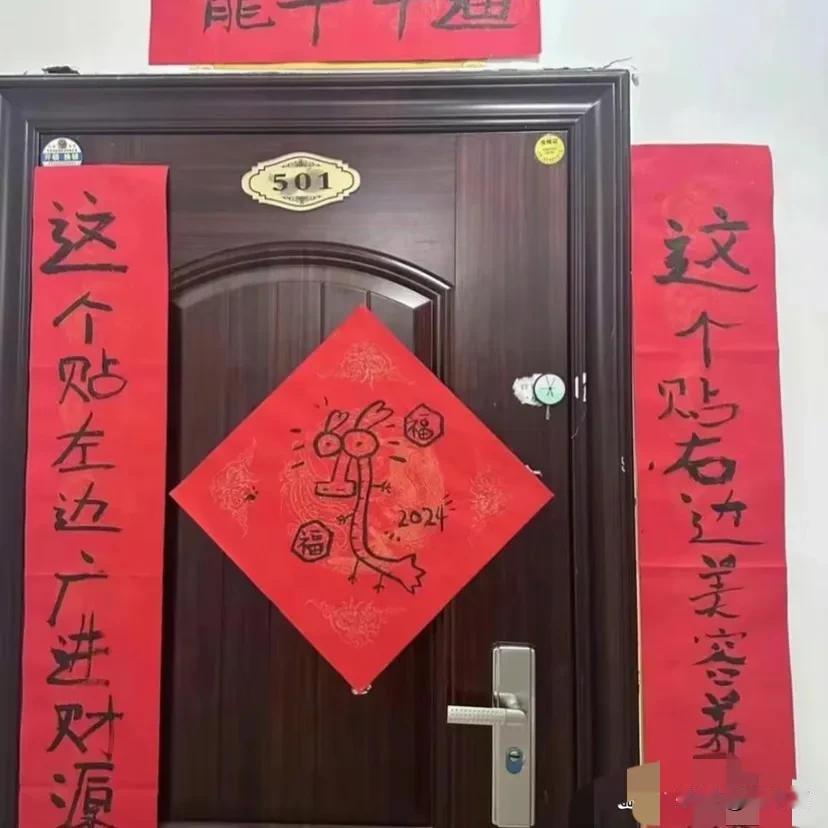 501
开锁 换锁
这个贴左边广进财源
福
福
2024
这个贴右边美容养